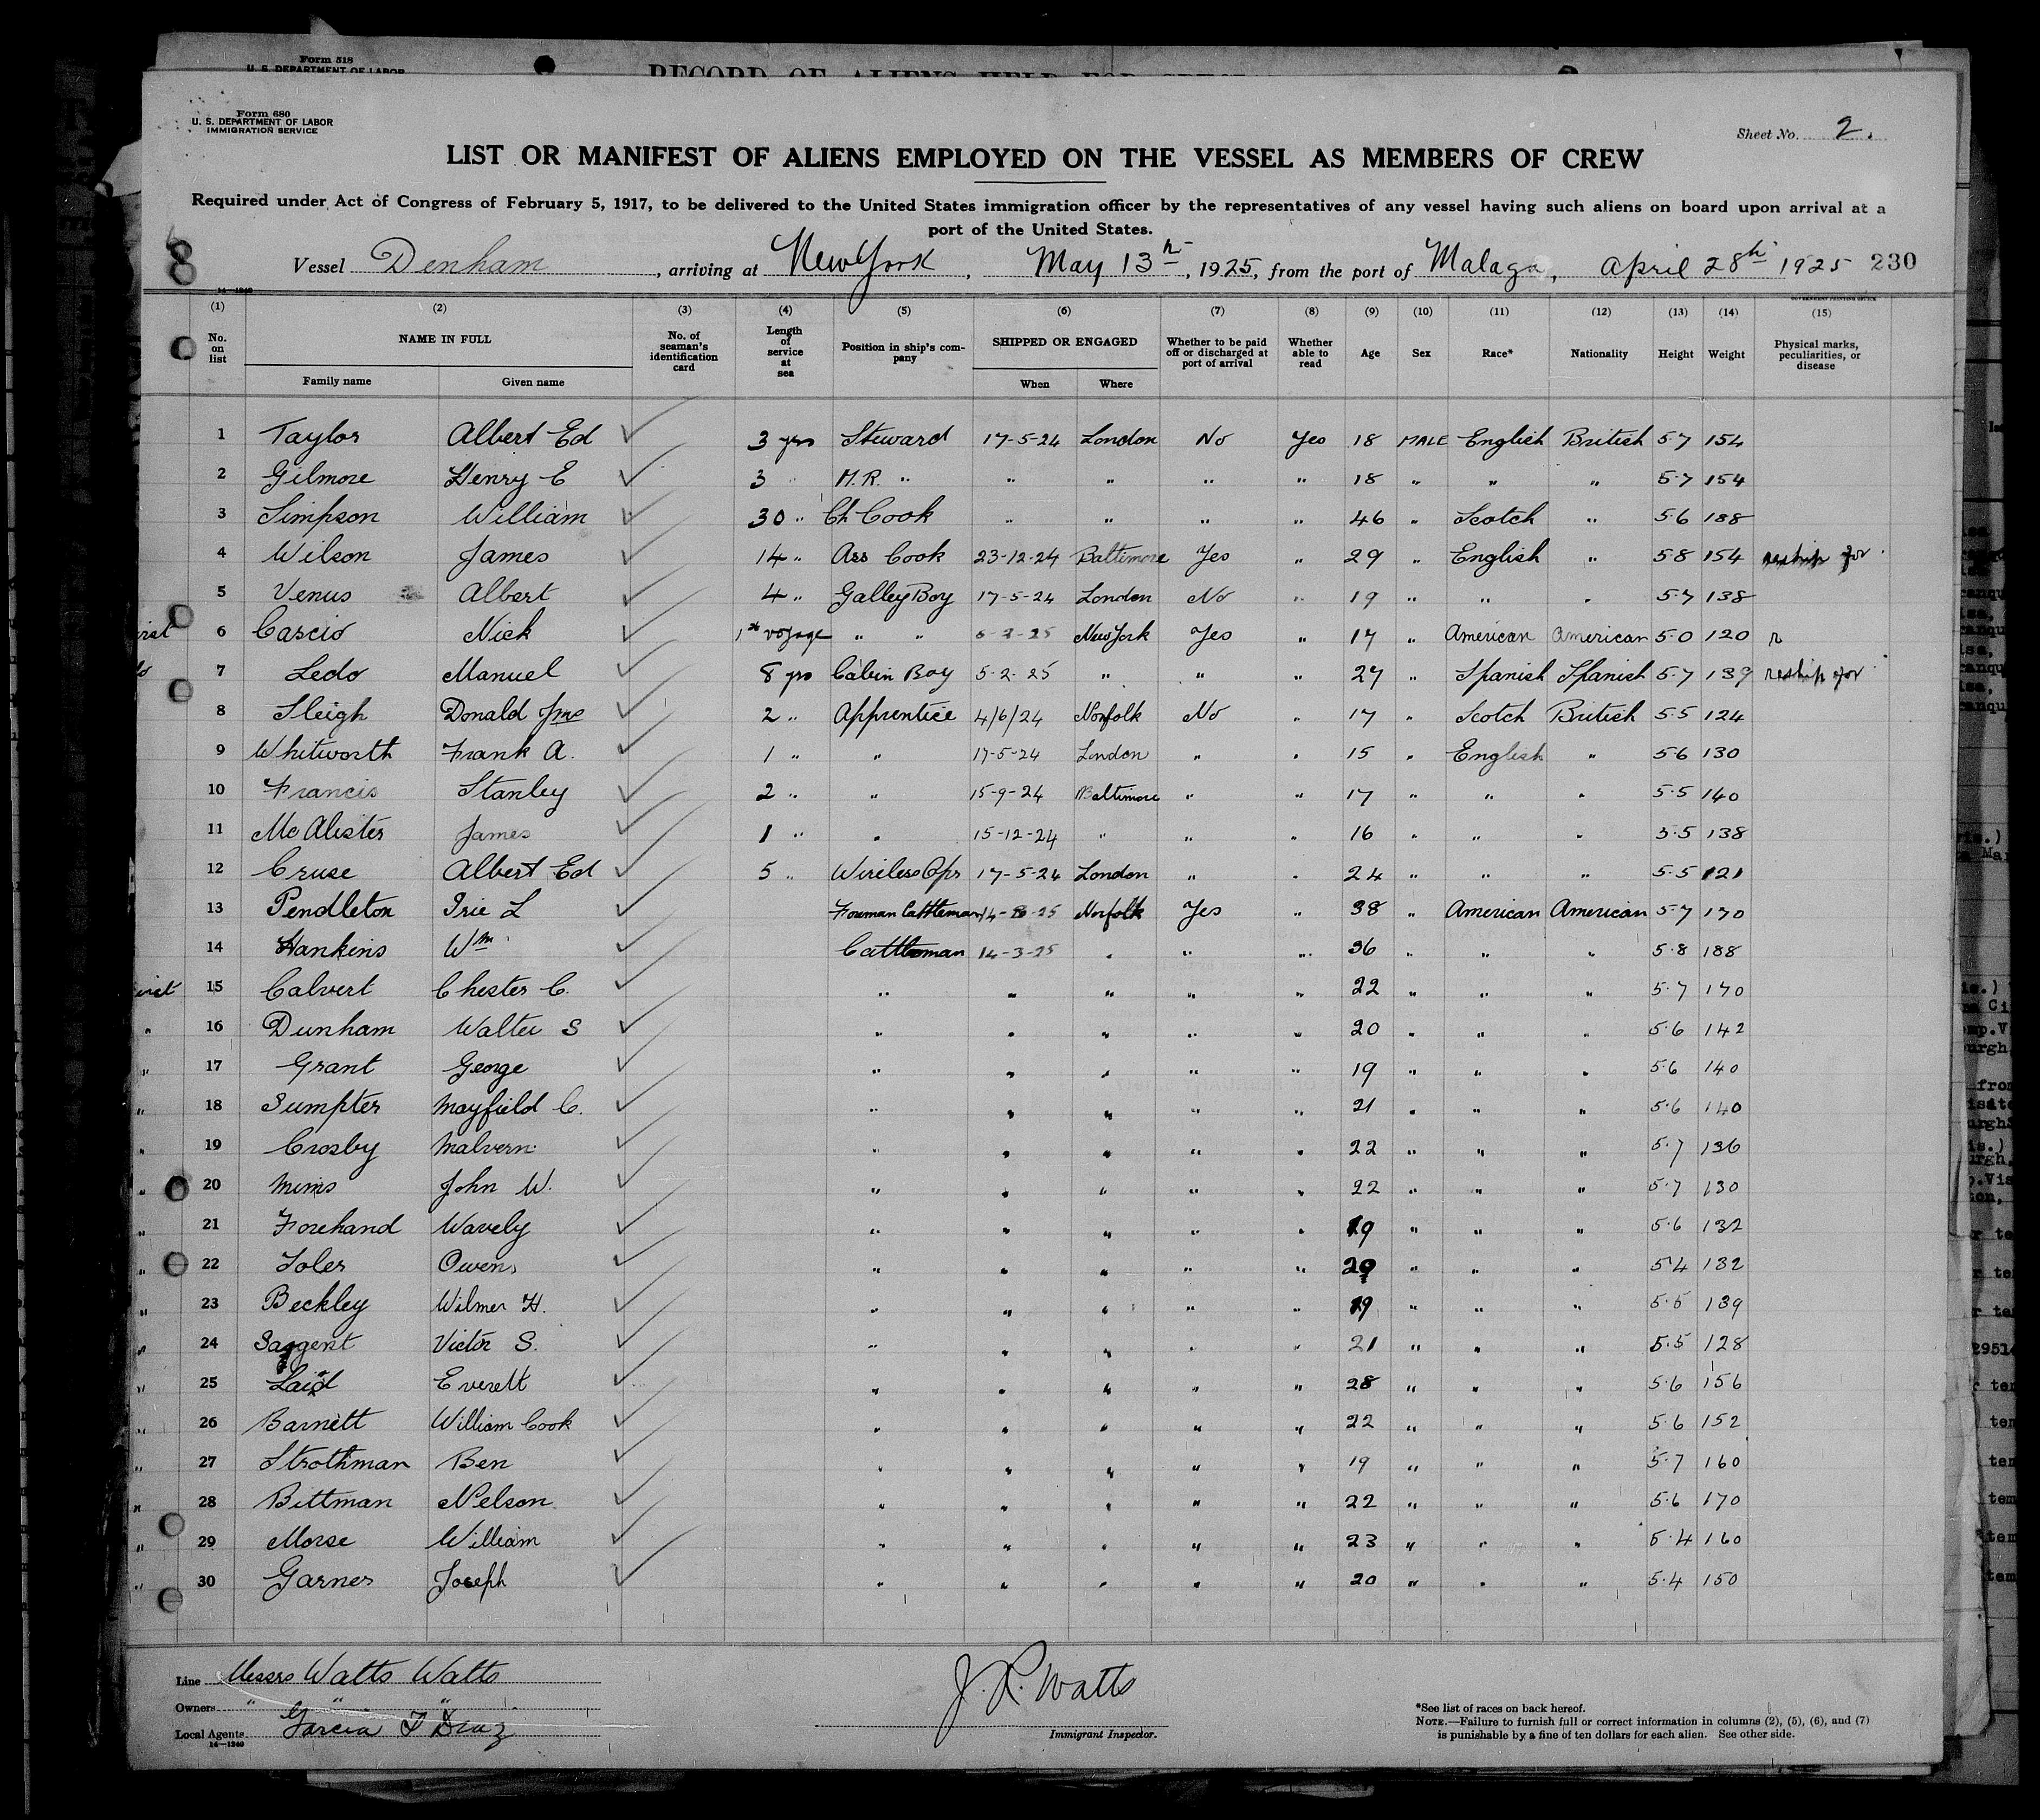 Form 518
U. S. DEPARTMENT OF LABOR
Form 680
U. S. DEPARTMENT OF LABOR
IMMIGRATION SERVICE
Sheet No. 2.
LIST OR MANIFEST OF ALIENS EMPLOYED ON THE VESSEL AS MEMBERS OF CREW
Required under Act of Congress of February 5, 1917, to be delivered to the United States immigration officer by the representatives of any vessel having such aliens on board upon arrival at a
port of the United States.
8 Vessel Denham, arriving at New York, May 13th, 1925, from the port of Malaga, April 28th 1925 230
(1) (2) (3) (4) (5) (6) (7) (8) (9) (10) (11) (12) (13) (14) (15)
No. on list NAME IN FULL Family name Given name No. of seaman's identification card Length of service at sea Position in ship's company SHIPPED OR ENGAGED When Where Whether to be paid off or discharged at port of arrival Whether able to read Age Sex Race* Nationality Height Weight Physical marks, peculiarities, or disease
1 Taylor Albert Ed 3 yrs Steward 17-5-24 London No Yes 18 MALE English British 5-7 154
2 Gilmore Henry E 3 " M.R. " " " " " 18 " " " 5-7 154
3 Simpson William 30 " Ch Cook " " " " 46 " Scotch " 5-6 188
4 Wilson James 14 " Ass Cook 23-12-24 Baltimore Yes " 29 " English " 5-8 154 reship for
5 Venus Albert 4 " Galley Boy 17-5-24 London No " 19 " " " 5-7 138
6 Cascio Nick 1st voyage " " New York Yes " 17 " American American 5-0 120 r
7 Ledo Manuel 8 yrs Cabin Boy 5-2-25 " " " 27 " Spanish Spanish 5-7 139 reship for
8 Sleigh Donald Jms 2 " Apprentice 4/6/24 Norfolk No " 17 " Scotch British 5-5 124
9 Whitworth Frank A. 1 " " 17-5-24 London " " 15 " English " 5-6 130
10 Francis Stanley 2 " " 15-9-24 Baltimore " " 17 " " " 5-5 140
11 McAlister James 1 " " 15-12-24 " " " 16 " " " 5-5 138
12 Cruse Albert Ed 5 " Wireless Opr 17-5-24 London " " 24 " " " 5-5 121
13 Pendleton Irie L Foreman Cattleman 14-3-25 Norfolk Yes " 38 " American American 5-7 170
14 Hankins Wm Cattleman 14-3-25 " " " 36 " " " 5-8 188
15 Calvert Chester C. " " " " " 22 " " " 5-7 170
16 Dunham Walter S " " " " " 20 " " " 5-6 142
17 Grant George " " " " " 19 " " " 5-6 140
18 Sumpter Mayfield C. " " " " " 21 " " " 5-6 140
19 Crosby Malvern " " " " " 22 " " " 5-7 136
20 Mims John W. " " " " " 22 " " " 5-7 130
21 Forehand Wavely " " " " " 19 " " " 5-6 132
22 Toler Owens " " " " " 20 " " " 5-4 132
23 Beckley Wilmer H. " " " " " 19 " " " 5-5 139
24 Sargent Victor S. " " " " " 21 " " " 5-5 128
25 Laird Everett " " " " " 28 " " " 5-6 156
26 Barnett William Cook " " " " " 22 " " " 5-6 152
27 Strothman Ben " " " " " 19 " " " 5-7 160
28 Bittman Nelson " " " " " 22 " " " 5-6 170
29 Morse William " " " " " 23 " " " 5-4 160
30 Garner Joseph " " " " " 20 " " " 5-4 150
Line Messrs Watts Watts
Owners " " "
Local Agents Garcia & Diaz
14-1240
J. R. Watts
Immigrant Inspector.
*See list of races on back hereof.
NOTE.—Failure to furnish full or correct information in columns (2), (5), (6), and (7)
is punishable by a fine of ten dollars for each alien. See other side.